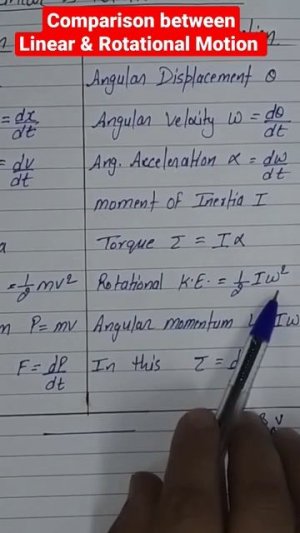 Comparison between
Linear & Rotational Motion
Angular Displacement θ
= dx/dt Angular Velocity ω = dθ/dt
= dv/dt Ang. Acceleration α = dω/dt
moment of Inertia I
a Torque τ = Iα
= 1/2 mv² Rotational K.E. = 1/2 Iω²
m P = mv Angular momentum L Iω
F = dP/dt In this τ = d